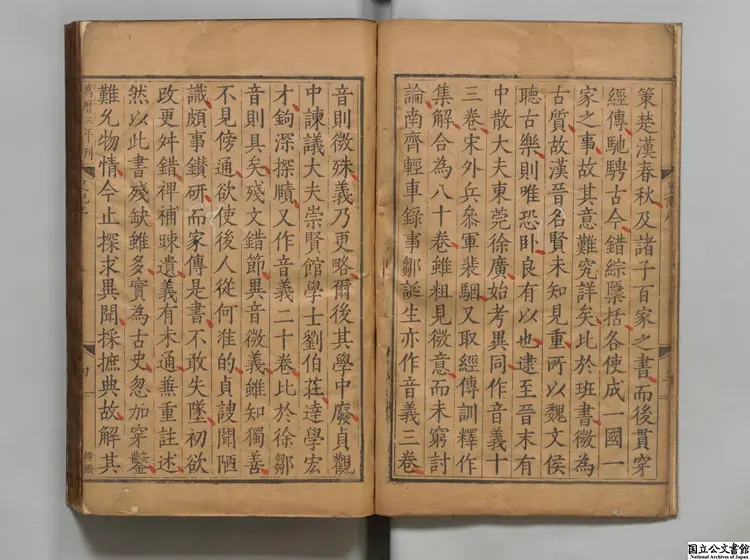 策楚漢春秋及諸子百家之書而後貫穿
經傳馳騁古今錯綜櫽括各使成一國一
家之事故其意難究詳矣比於班書微為
古質故漢晉名賢未知見重所以魏文侯
聽古樂則唯恐臥良有以也逮至晉末有
中散大夫東莞徐廣始考異同作音義十
三卷宋外兵參軍裴駰又取經傳訓釋作
集解合為八十卷雖粗見微意而未窮討
論南齊輕車錄事鄒誕生亦作音義三卷
音則微殊義乃更略爾後其學中廢貞觀
中諫議大夫崇賢館學士劉伯莊達學宏
才鉤深探賾又作音義二十卷比於徐鄒
音則具矣殘文錯節異音微義雖知獨善
不見傍通欲使後人從何准的貞謏聞陋
識頗事鑽研而家傳是書不敢失墜初欲
改更舛錯裨補疎遺義有未通兼重註述
然以此書殘缺雖多實為古史忽加穿鑿
難允物情今止探求異聞採摭典故解其
萬曆三年刊
国立公文書館
National Archives of Japan